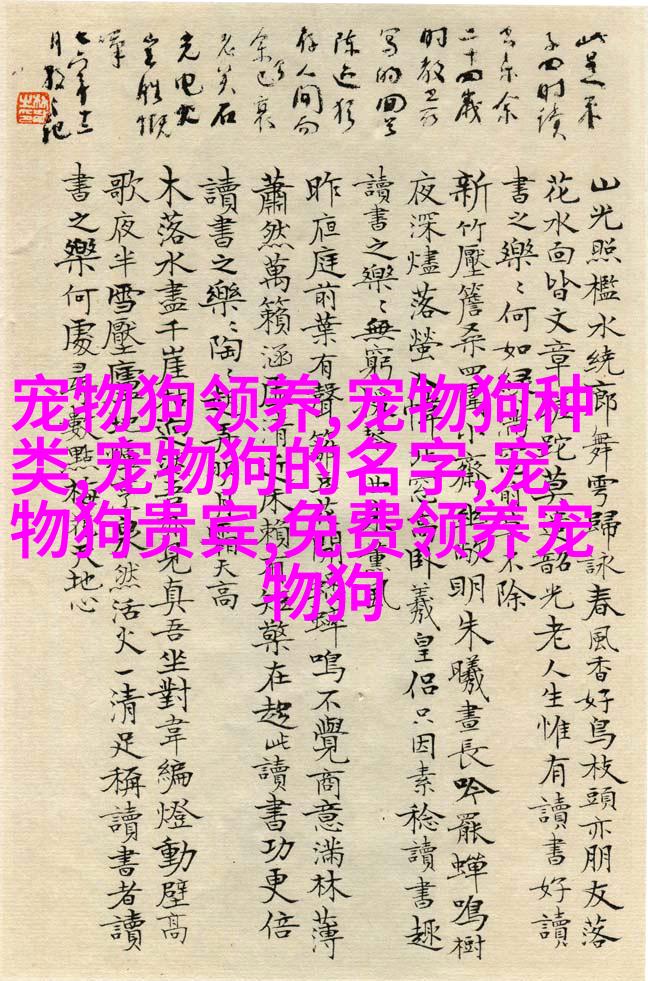 此是朱
子四时读
书乐余
二十四歲
时教
写的四
陈迹犹
存人间而
余已衰
老矣石
光电火
岂胜慨
嘆
七六年十二
月
山光照檻水繞廊舞雩歸詠春風香好鳥枝頭亦朋友落
花水面皆文章蹉跎莫韶光老人生惟有讀書好讀
書之樂〻何如綠滿窗前草不除
新竹壓簷桑四圍小齋幽敞明朱曦晝長吟罷蟬鳴樹
夜深燼落螢入幃北窗高卧羲皇侶只因素稔讀書趣
讀書之樂〻無窮琴一曲來薰風
昨夜庭前葉有聲籬豆花開蟋蟀鳴不覺商意滿林薄
蕭然萬籟涵虛清近床賴有短檠在趁此讀書功更倍
讀書之樂〻陶〻起弄明月霜天高
木落水盡千崖枯見真吾坐對韋編燈動壁高
歌夜半雪壓廬然活火一清足稱讀書者讀
書之樂何處尋數點梅花天地心
宠物狗领养,宠物狗种
类,宠物狗的名字,宠
物狗贵宾,免费领养宠
物狗